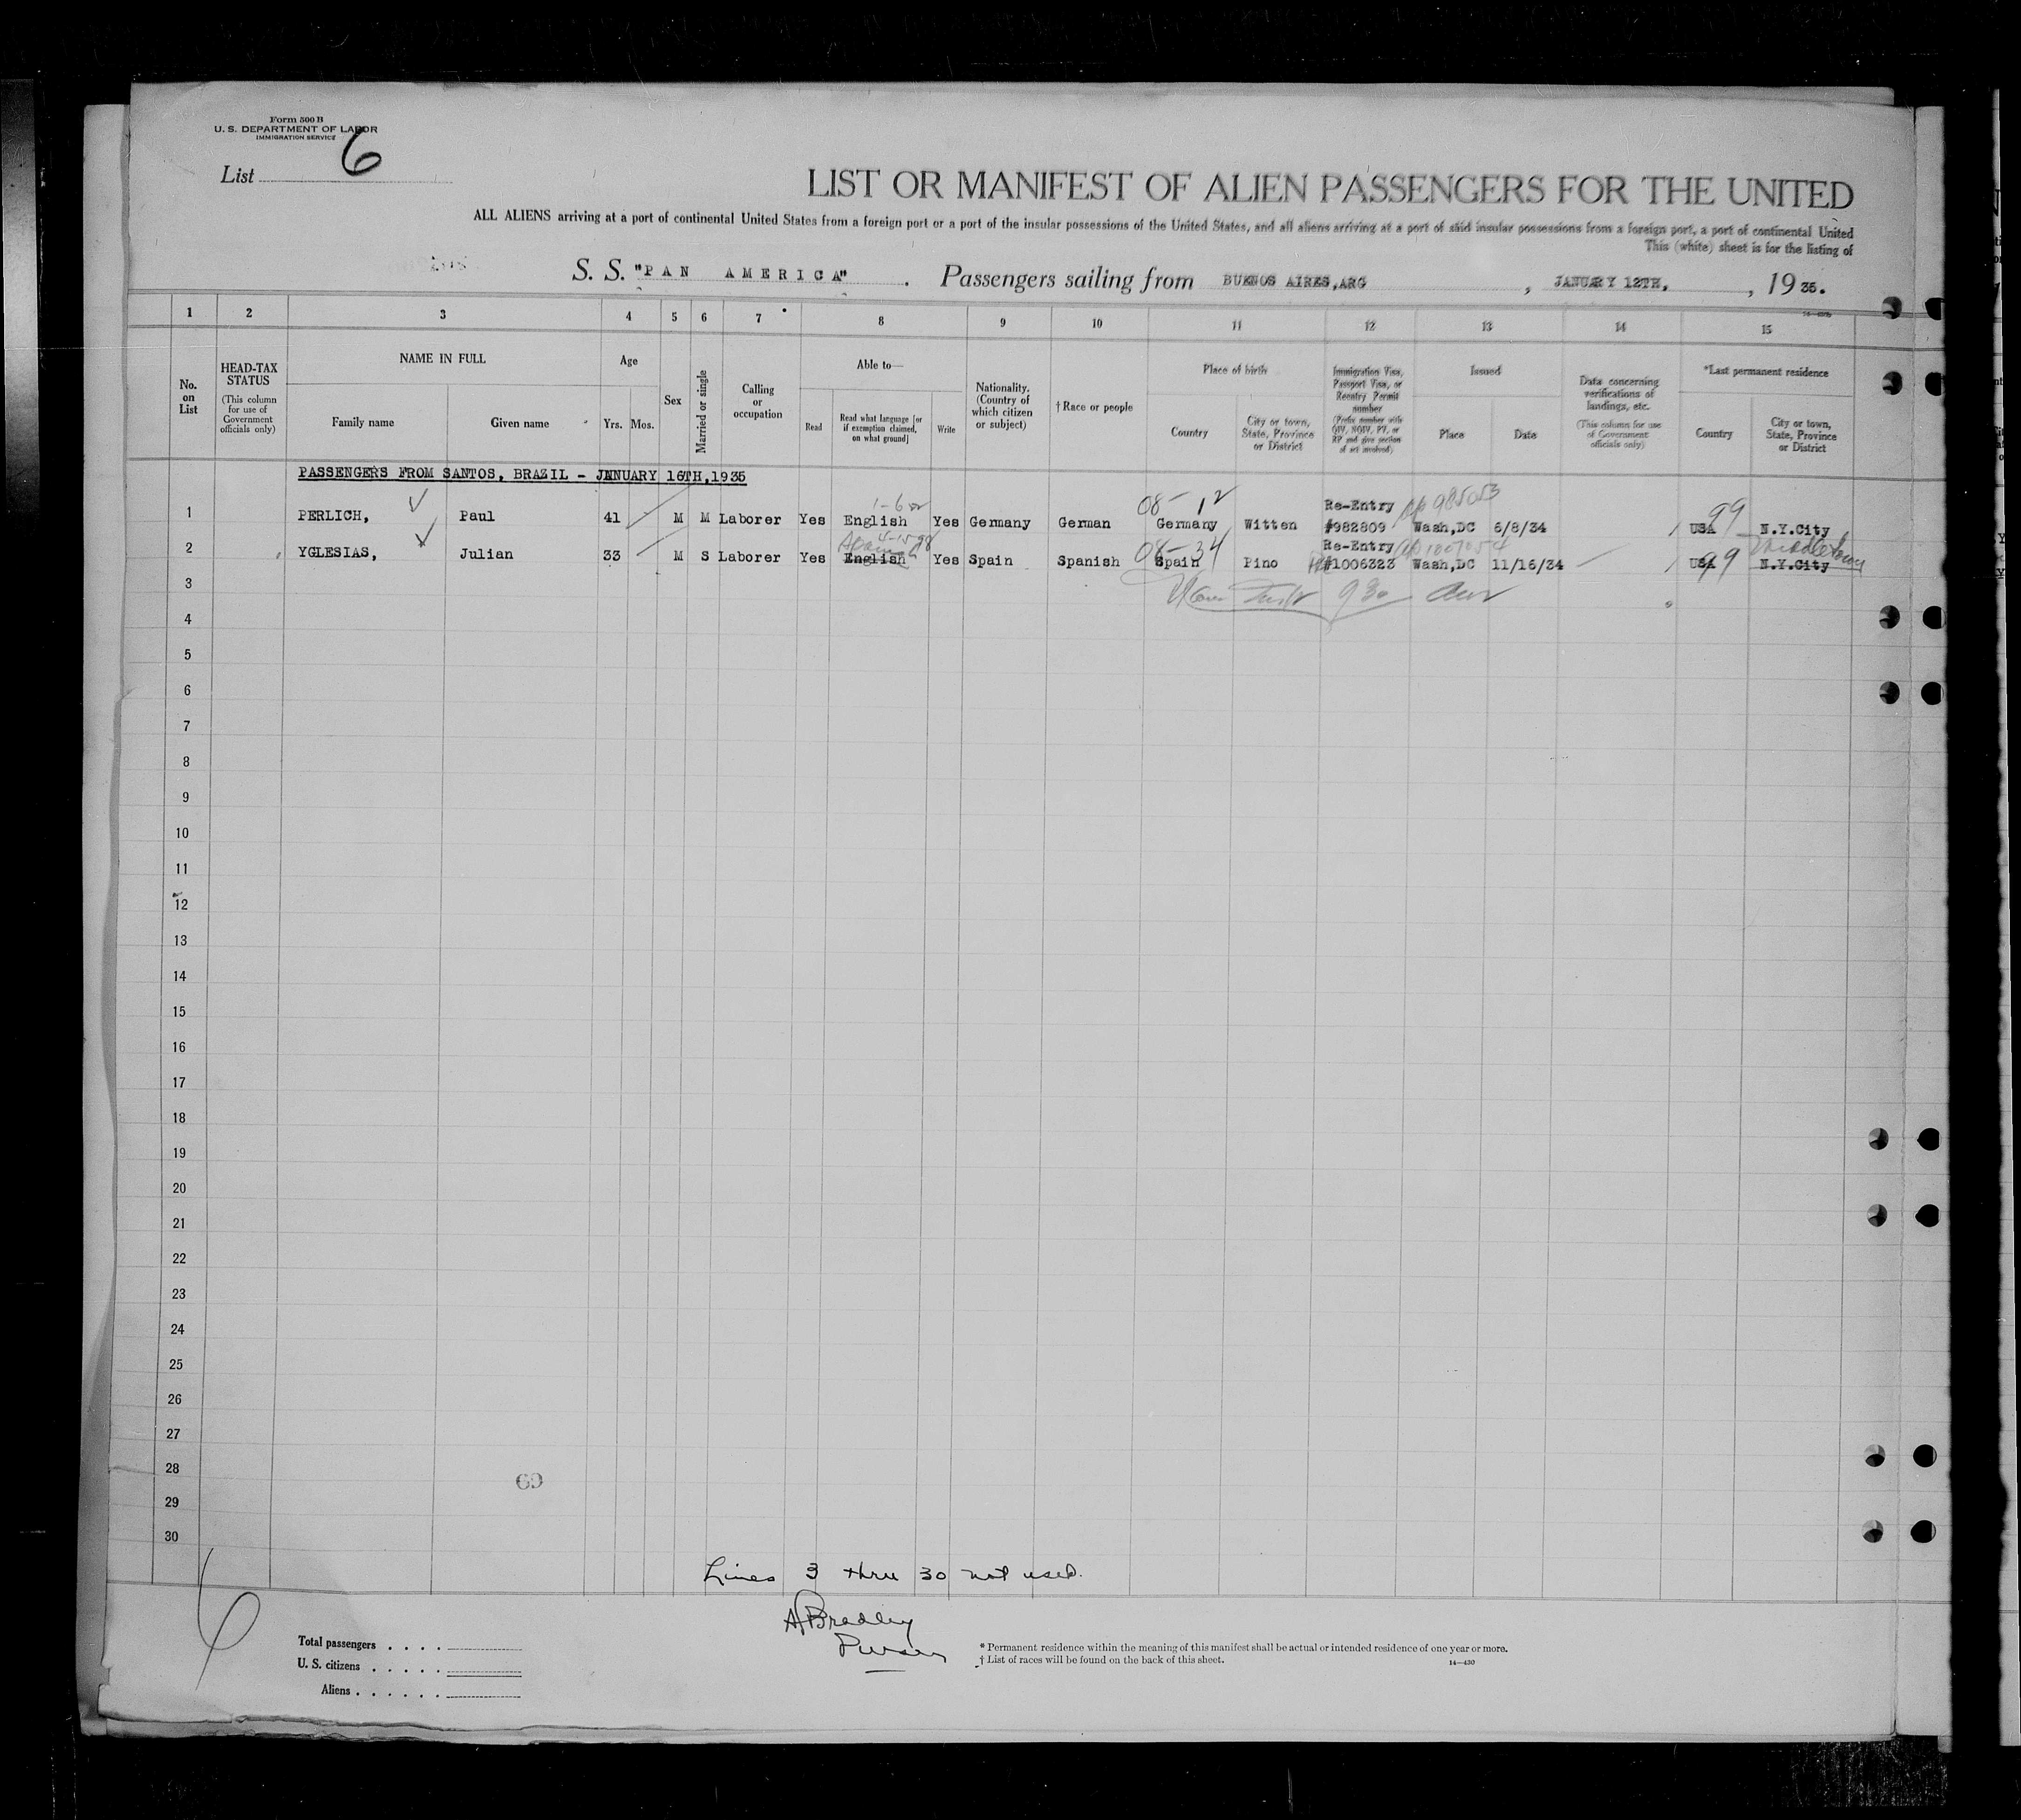 Form 500 B
U. S. DEPARTMENT OF LABOR
IMMIGRATION SERVICE
List 6
LIST OR MANIFEST OF ALIEN PASSENGERS FOR THE UNITED
ALL ALIENS arriving at a port of continental United States from a foreign port or a port of the insular possessions of the United States, and all aliens arriving at a port of said insular possessions from a foreign port, a port of continental United
This (white) sheet is for the listing of
S. S. "PAN AMERICA". Passengers sailing from BUENOS AIRES,ARG , JANUARY 12TH, , 1935.
1 2 3 4 5 6 7 8 9 10 11 12 13 14 15
No. on List
HEAD-TAX STATUS (This column for use of Government officials only)
NAME IN FULL
Family name Given name
Age
Yrs. Mos.
Sex
Married or single
Calling or occupation
Able to—
Read Read what language [or if exemption claimed, on what ground] Write
Nationality. (Country of which citizen or subject)
†Race or people
Place of birth
Country City or town, State, Province or District
Immigration Visa, Passport Visa, or Reentry Permit number (Prefix number with QIV, NQIV, PV, or RP and give section of act involved)
Issued
Place Date
Data concerning verifications of landings, etc. (This column for use of Government officials only)
*Last permanent residence
Country City or town, State, Province or District
PASSENGERS FROM SANTOS, BRAZIL - JNNUARY 16TH,1935
08-12 Re-Entry 985053 99
1 PERLICH, Paul 41 M M Laborer Yes English Yes Germany German Germany Witten #982809 Wash,DC 6/8/34 USA N.Y.City
Spanish 08-34 Re-Entry 99 Middletown
2 YGLESIAS, Julian 33 M S Laborer Yes English Yes Spain Spanish Spain Pino #1006323 Wash,DC 11/16/34 USA N.Y.City
3
4
5
6
7
8
9
10
11
12
13
14
15
16
17
18
19
20
21
22
23
24
25
26
27
28
29
30
69
Lines 3 thru 30 not used.
A Bradley
Purser
6
Total passengers
U. S. citizens
Aliens
* Permanent residence within the meaning of this manifest shall be actual or intended residence of one year or more.
† List of races will be found on the back of this sheet.
14—430